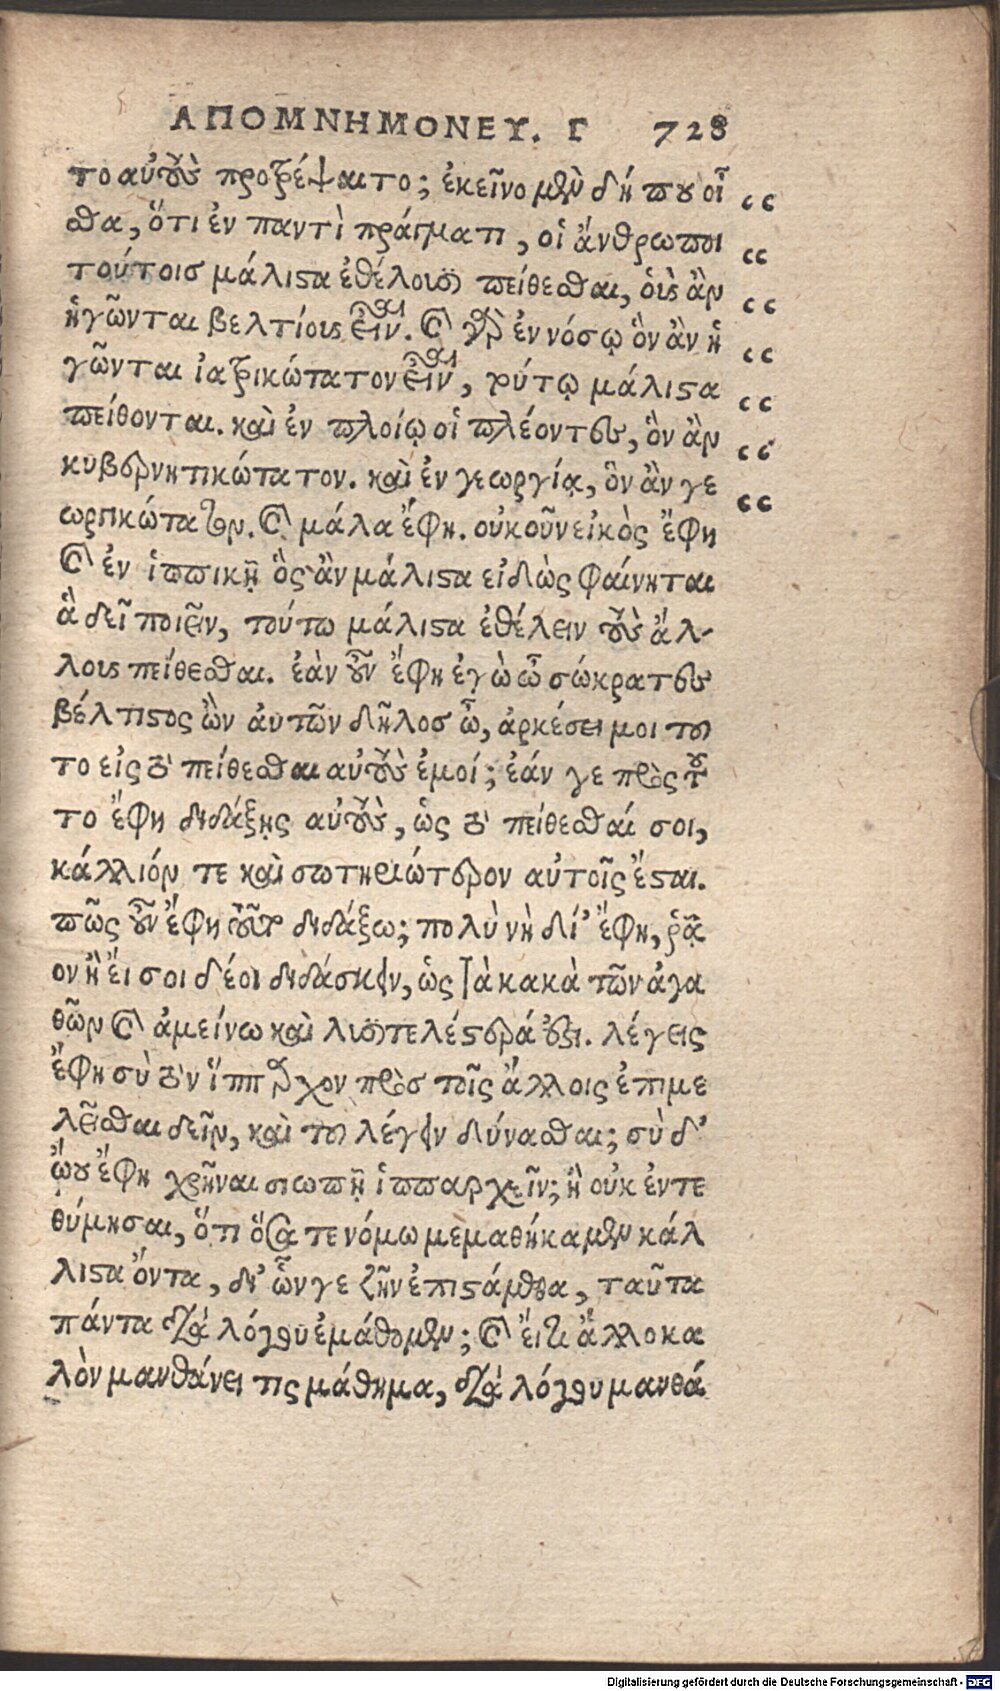 ΑΠΟΜΝΗΜΟΝΕΥ. Γ 728
το αὐτοὺς προτρέψαιτο; ἐκεῖνο μὲν δή που οἶ
σθα, ὅτι ἐν παντὶ πράγματι, οἱ ἄνθρωποι
τούτοις μάλιστα ἐθέλουσι πείθεσθαι, οὓς ἂν
ἡγῶνται βελτίους εἶναι. καὶ γὰρ ἐν νόσῳ ὃν ἂν ἡ
γῶνται ἰατρικώτατον εἶναι, τούτῳ μάλιστα
πείθονται. καὶ ἐν πλοίῳ οἱ πλέοντες, ὃν ἂν
κυβερνητικώτατον. καὶ ἐν γεωργίᾳ, ὃν ἂν γε
ωργικώτατον. καὶ μάλα ἔφη. οὐκοῦν εἰκὸς ἔφη
καὶ ἐν ἱππικῇ ὃς ἂν μάλιστα εἰδὼς φαίνηται
ἃ δεῖ ποιεῖν, τούτω μάλιστα ἐθέλειν τοὺς ἄλ-
λους πείθεσθαι. ἐὰν οὖν ἔφη ἐγὼ ὦ σώκρατες
βέλτιστος ὢν αὐτῶν δῆλος ὦ, ἀρκέσει μοι τοῦ
το εἰς τὸ πείθεσθαι αὐτοὺς ἐμοί; ἐάν γε πρὸς τού
το ἔφη διδάξῃς αὐτοὺς, ὡς τὸ πείθεσθαί σοι,
κάλλιόν τε καὶ σωτηριώτερον αὐτοῖς ἔσται.
πῶς οὖν ἔφη τοῦτο διδάξω; πολὺ νὴ δί' ἔφη, ῥᾷ
ον ἢ εἴ σοι δέοι διδάσκειν, ὡς τὰ κακὰ τῶν ἀγα
θῶν καὶ ἀμείνω καὶ λυσιτελέστερά ἐστι. λέγεις
ἔφη σὺ τὸν ἵππαρχον πρὸς τοῖς ἄλλοις ἐπιμε
λεῖσθαι δεῖν, καὶ τοῦ λέγειν δύνασθαι; σὺ δ'
ᾤου ἔφη χρῆναι σιωπῇ ἱππαρχεῖν; ἢ οὐκ ἐντε
θύμησαι, ὅτι ὅσα τε νόμω μεμαθήκαμεν κάλ
λιστα ὄντα, δι' ὧν γε ζῆν ἐπιστάμεθα, ταῦτα
πάντα διὰ λόγου ἐμάθομεν; καὶ εἴ τι ἄλλο κα
λὸν μανθάνει τις μάθημα, διὰ λόγου μανθά
Digitalisierung gefördert durch die Deutsche Forschungsgemeinschaft - DFG